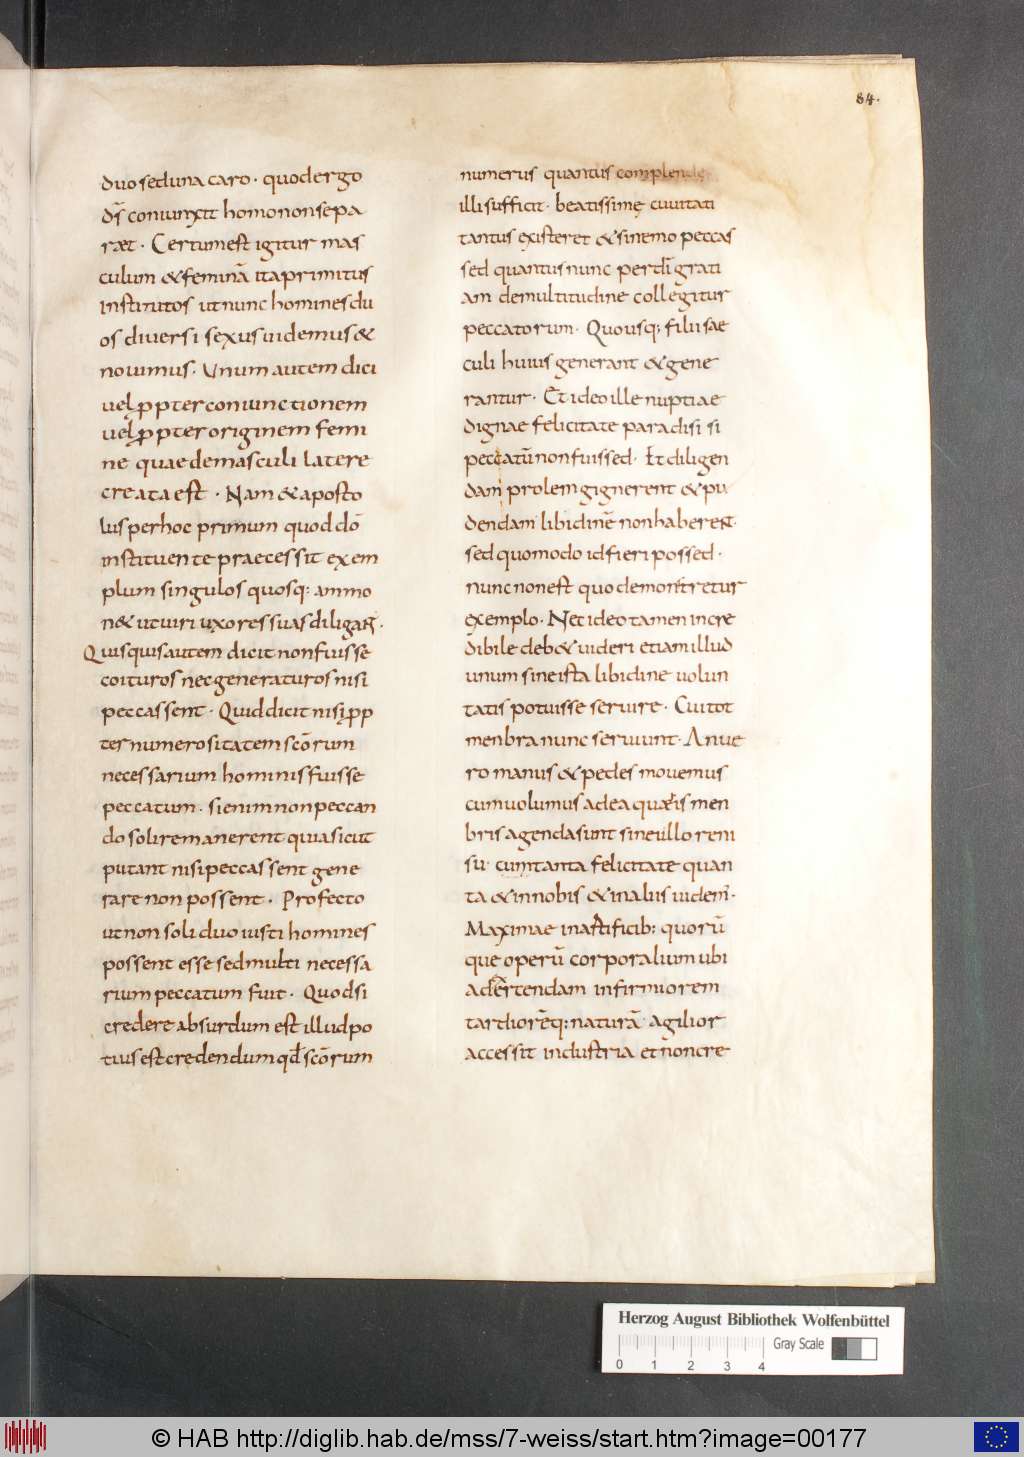 84.
duo sed una caro. quod ergo
ds̄ coniunxit homo non sepa
ræt. Certum est igitur mas
culum & feminā ita primitus
institutos ut nunc homines du
os diversi sexus uidemus &
nouimus. Unum autem dici
uel ppter coniunctionem
uel ppter originem femi
ne quae de masculi latere
creata est. Nam & aposto
lus per hoc primum quod dō
instituente praecessit exem
plum singulos quosq: ammo
n& ut uiri uxores suas diligaň.
Quisquis autem dicit non fuisse
coituros nec generaturos nisi
peccassent. Quid dicit nisi pp
ter numerositatem scōrum
necessarium hominis fuisse
peccatum. si enim non peccan
do soli remanerent quia sicut
putant nisi peccassent gene
rare non possent. Profecto
ut non soli duo iusti homines
possent esse sed multi necessa
rium peccatum fuit. Quod si
credere absurdum est illud po
tius est credendum qđ scōrum
numerus quantus complendę
illi sufficit. beatissimę ciuitati
tantus existeret & si nemo peccas
sed quantus nunc per dī grati
am de multitudine collegitur
peccatorum. Quousq; filii sae
culi huius generant & gene
rantur. Et ideo ille nuptiae
dignae felicitate paradisi si
peccatū non fuissed. Et diligen
dam prolem gignerent & pu
dendam libidinē non habereň.
sed quomodo id fieri possed.
nunc non est quo demonstretur
exemplo. Nec ideo tamen incre
dibile deb& uideri etiam illud
unum sine ista libidine uolun
tatis potuisse seruire. Cui tot
menbra nunc seruiunt. An ue
ro manus & pedes mouemus
cum uolumus ad ea quæ his men
bris agenda sunt sine ullo reni
su. cum tanta felicitate quan
ta & in nobis & in aliis uidem̄.
Maxime in artificib: quorū
que operū corporalium ubi
ad exercendam infirmiorem
tardiorēq: naturā agilior
accessit industria et non cre
Herzog August Bibliothek Wolfenbüttel
0 1 2 3 4
Gray Scale
© HAB http://diglib.hab.de/mss/7-weiss/start.htm?image=00177